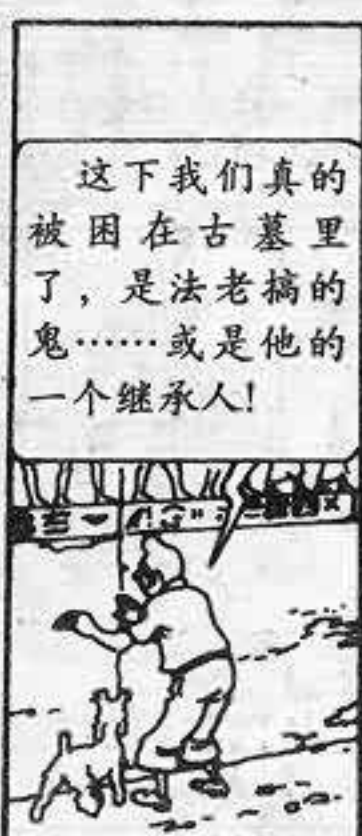 这下我们真的
被困在古墓里
了，是法老搞的
鬼……或是他的
一个继承人!